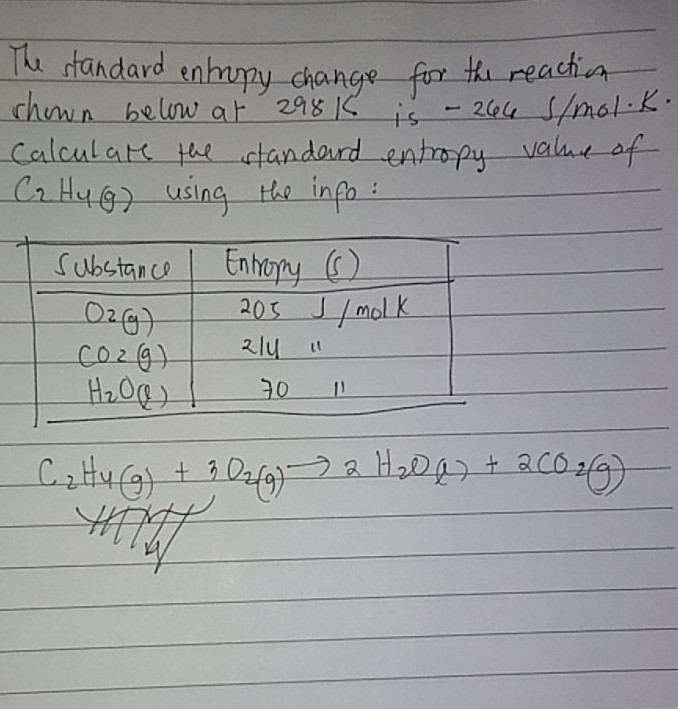 The standard entropy change for the reaction
shown below at 298 K is - 266 J/mol·K.
Calculate the standard entropy value of
C2H4(g) using the info :
Substance Entropy (S)
O2(g) 205 J/mol K
CO2(g) 214 "
H2O(l) 70 "
C2H4(g) + 3O2(g) → 2 H2O(l) + 2CO2(g)